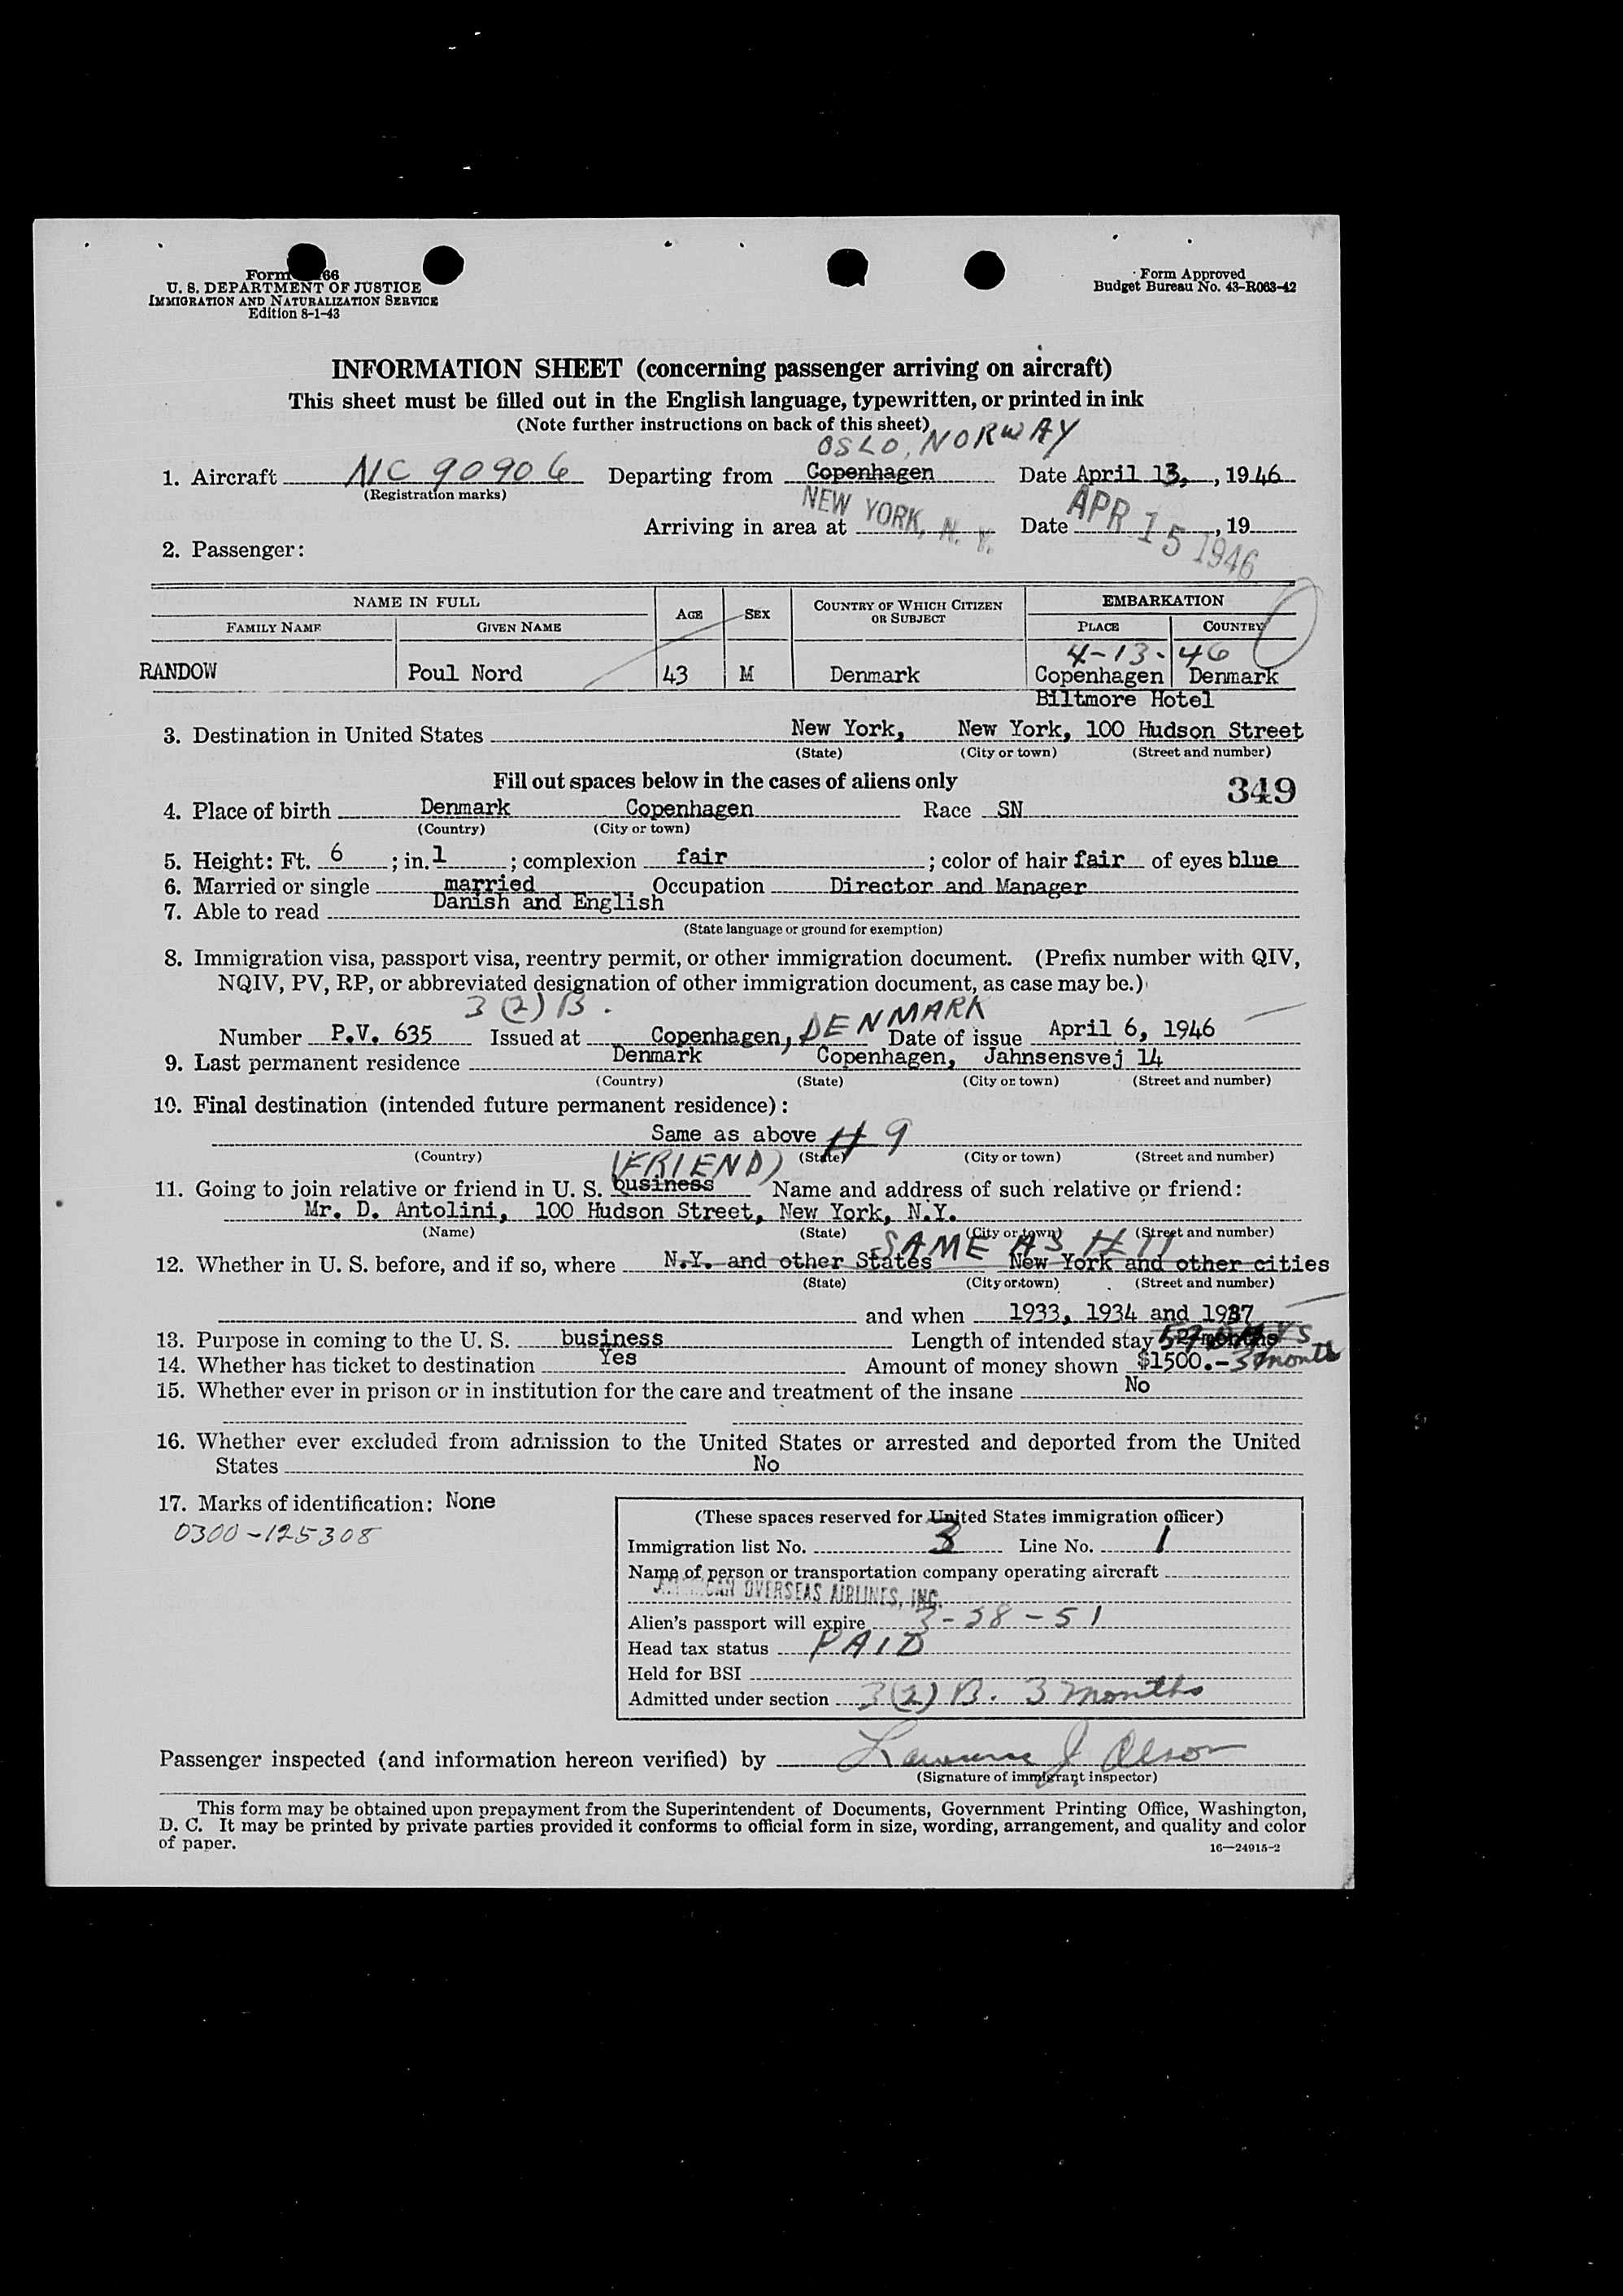 Form 66
U. S. DEPARTMENT OF JUSTICE
IMMIGRATION AND NATURALIZATION SERVICE
Edition 8-1-43
Form Approved
Budget Bureau No. 43-R063-42
INFORMATION SHEET (concerning passenger arriving on aircraft)
This sheet must be filled out in the English language, typewritten, or printed in ink
(Note further instructions on back of this sheet)
OSLO, NORWAY
1. Aircraft NC 90906 Departing from Copenhagen Date April 13, , 1946
(Registration marks)
Arriving in area at NEW YORK, N. Y. Date APR 15 1946 , 19
2. Passenger:
NAME IN FULL AGE SEX COUNTRY OF WHICH CITIZEN OR SUBJECT EMBARKATION
FAMILY NAME GIVEN NAME PLACE COUNTRY
4-13-46
RANDOW Poul Nord 43 M Denmark Copenhagen Denmark
Biltmore Hotel
3. Destination in United States New York, New York, 100 Hudson Street
(State) (City or town) (Street and number)
Fill out spaces below in the cases of aliens only 349
4. Place of birth Denmark Copenhagen Race SN
(Country) (City or town)
5. Height: Ft. 6 ; in. 1 ; complexion fair ; color of hair fair of eyes blue
6. Married or single married Occupation Director and Manager
7. Able to read Danish and English
(State language or ground for exemption)
8. Immigration visa, passport visa, reentry permit, or other immigration document. (Prefix number with QIV,
NQIV, PV, RP, or abbreviated designation of other immigration document, as case may be.)
3 (2) B.
Number P.V. 635 Issued at Copenhagen, DENMARK Date of issue April 6, 1946
9. Last permanent residence Denmark Copenhagen, Jahnsensvej 14
(Country) (State) (City or town) (Street and number)
10. Final destination (intended future permanent residence):
Same as above # 9
(Country) (State) (City or town) (Street and number)
(FRIEND)
11. Going to join relative or friend in U. S. business Name and address of such relative or friend:
Mr. D. Antolini, 100 Hudson Street, New York, N.Y.
(Name) (State) (City or town) (Street and number)
SAME AS # 11
12. Whether in U. S. before, and if so, where N.Y. and other States New York and other cities
(State) (City or town) (Street and number)
and when 1933, 1934 and 1937
13. Purpose in coming to the U. S. business Length of intended stay
14. Whether has ticket to destination Yes Amount of money shown $1500.- 3 month
15. Whether ever in prison or in institution for the care and treatment of the insane No
16. Whether ever excluded from admission to the United States or arrested and deported from the United
States No
17. Marks of identification: None
0300-125308
(These spaces reserved for United States immigration officer)
Immigration list No. 3 Line No. 1
Name of person or transportation company operating aircraft
AMERICAN OVERSEAS AIRLINES, INC.
Alien's passport will expire 3-28-51
Head tax status PAID
Held for BSI
Admitted under section 3(2) B. 3 months
Passenger inspected (and information hereon verified) by Lawrence J Olson
(Signature of immigrant inspector)
This form may be obtained upon prepayment from the Superintendent of Documents, Government Printing Office, Washington,
D. C. It may be printed by private parties provided it conforms to official form in size, wording, arrangement, and quality and color
of paper.
16—24915-2